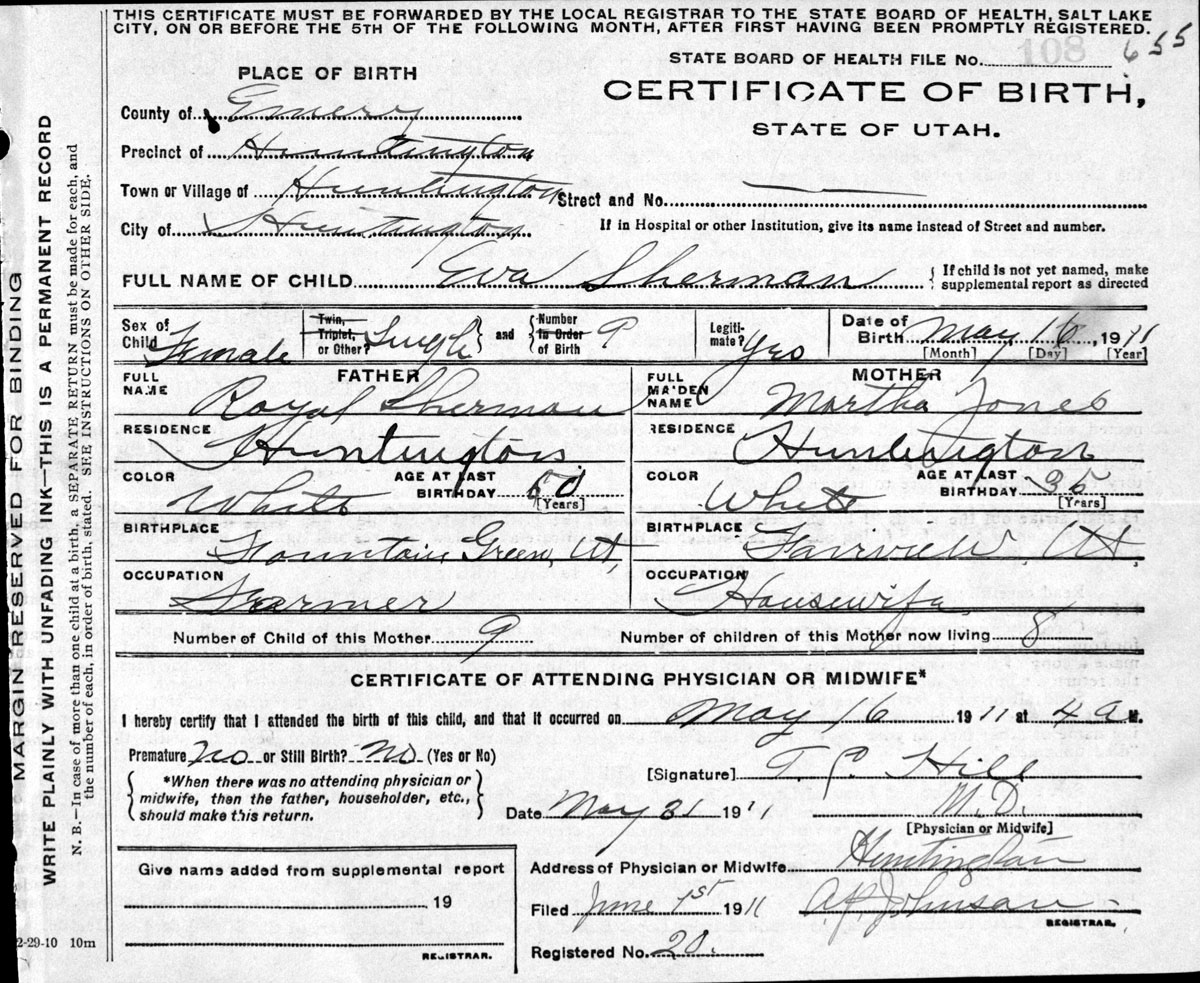 THIS CERTIFICATE MUST BE FORWARDED BY THE LOCAL REGISTRAR TO THE STATE BOARD OF HEALTH, SALT LAKE
CITY, ON OR BEFORE THE 5TH OF THE FOLLOWING MONTH, AFTER FIRST HAVING BEEN PROMPTLY REGISTERED.
STATE BOARD OF HEALTH FILE No. 108 655
PLACE OF BIRTH
CERTIFICATE OF BIRTH,
STATE OF UTAH.
County of Emery
Precinct of Huntington
Town or Village of Huntington Street and No. —
City of Huntington If in Hospital or other Institution, give its name instead of Street and number.
FULL NAME OF CHILD Eva Sherman { If child is not yet named, make
supplemental report as directed
Sex of Child Female Twin, Triplet, or Other? Single } and { Number in Order of Birth 9 Legiti-mate? Yes Date of Birth May 16, 1911
[Month] [Day] [Year]
FATHER MOTHER
FULL NAME Royal Sherman FULL MAIDEN NAME Martha Jones
RESIDENCE Huntington RESIDENCE Huntington
COLOR White AGE AT LAST BIRTHDAY 50 [Years] COLOR White AGE AT LAST BIRTHDAY 35 [Years]
BIRTHPLACE Mountain Green, Ut, BIRTHPLACE Fairview Ut
OCCUPATION Farmer OCCUPATION Housewife
Number of Child of this Mother 9 Number of children of this Mother now living 8
CERTIFICATE OF ATTENDING PHYSICIAN OR MIDWIFE*
I hereby certify that I attended the birth of this child, and that it occurred on May 16 1911 at 4 a M.
Premature No or Still Birth? No (Yes or No)
{ *When there was no attending physician or
midwife, then the father, householder, etc.,
should make this return. }
[Signature] T. C. Hill
Date May 31 1911 M.D.
[Physician or Midwife]
Address of Physician or Midwife Huntington
Filed June 1st 1911 Johnson
REGISTRAR.
Registered No. 20.
Give name added from supplemental report
19
REGISTRAR.
MARGIN RESERVED FOR BINDING
WRITE PLAINLY WITH UNFADING INK—THIS IS A PERMANENT RECORD
N. B.—In case of more than one child at a birth, a SEPARATE RETURN must be made for each, and
the number of each, in order of birth, stated. SEE INSTRUCTIONS ON OTHER SIDE.
2-29-10 10m